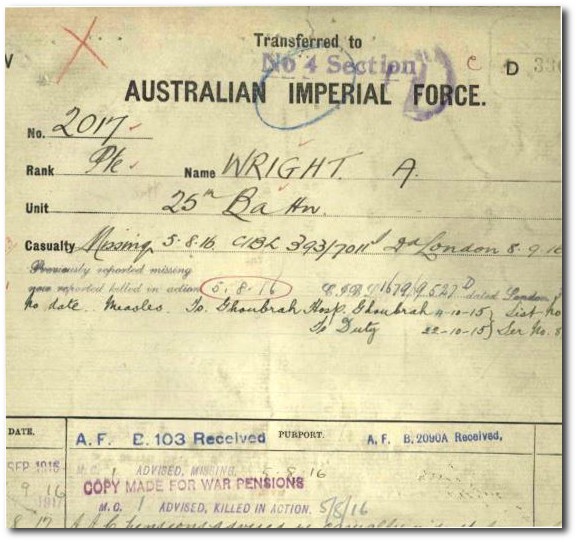 Transferred to
No 4 Section
C D
AUSTRALIAN IMPERIAL FORCE.
No. 2017
Rank Pte Name WRIGHT. A.
Unit 25th Battn.
Casualty Missing 5.8.16. CIBL 393/7011 Da London 8.9.16
Previously reported missing
now reported killed in action 5.8.16 dated London
no date. Measles. To. Ghoubrah Hosp. Ghoubrah 4-10-15 } List No
To Duty 22-10-15 } Ser No. 8
DATE. A.F. B.103 Received PURPORT. A.F. B.2090A Received.
SEP 1916 M.C. 1 ADVISED, MISSING. 5-8-16
9 16 COPY MADE FOR WAR PENSIONS
1917 M.C. 1 ADVISED, KILLED IN ACTION. 5/8/16
8.17